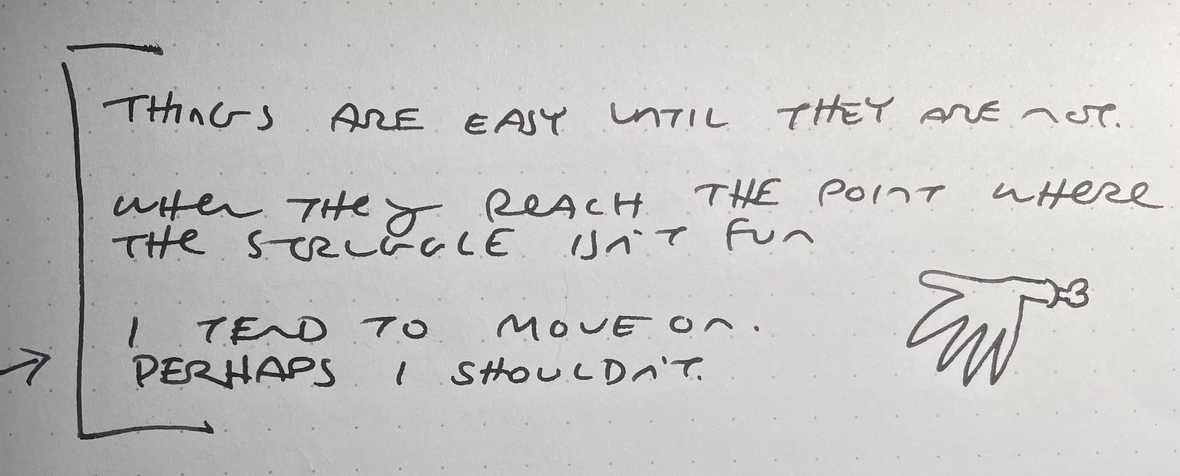 THINGS ARE EASY UNTIL THEY ARE NOT.
WHEN THEY REACH THE POINT WHERE
THE STRUGGLE ISN'T FUN
I TEND TO MOVE ON.
PERHAPS I SHOULDN'T.